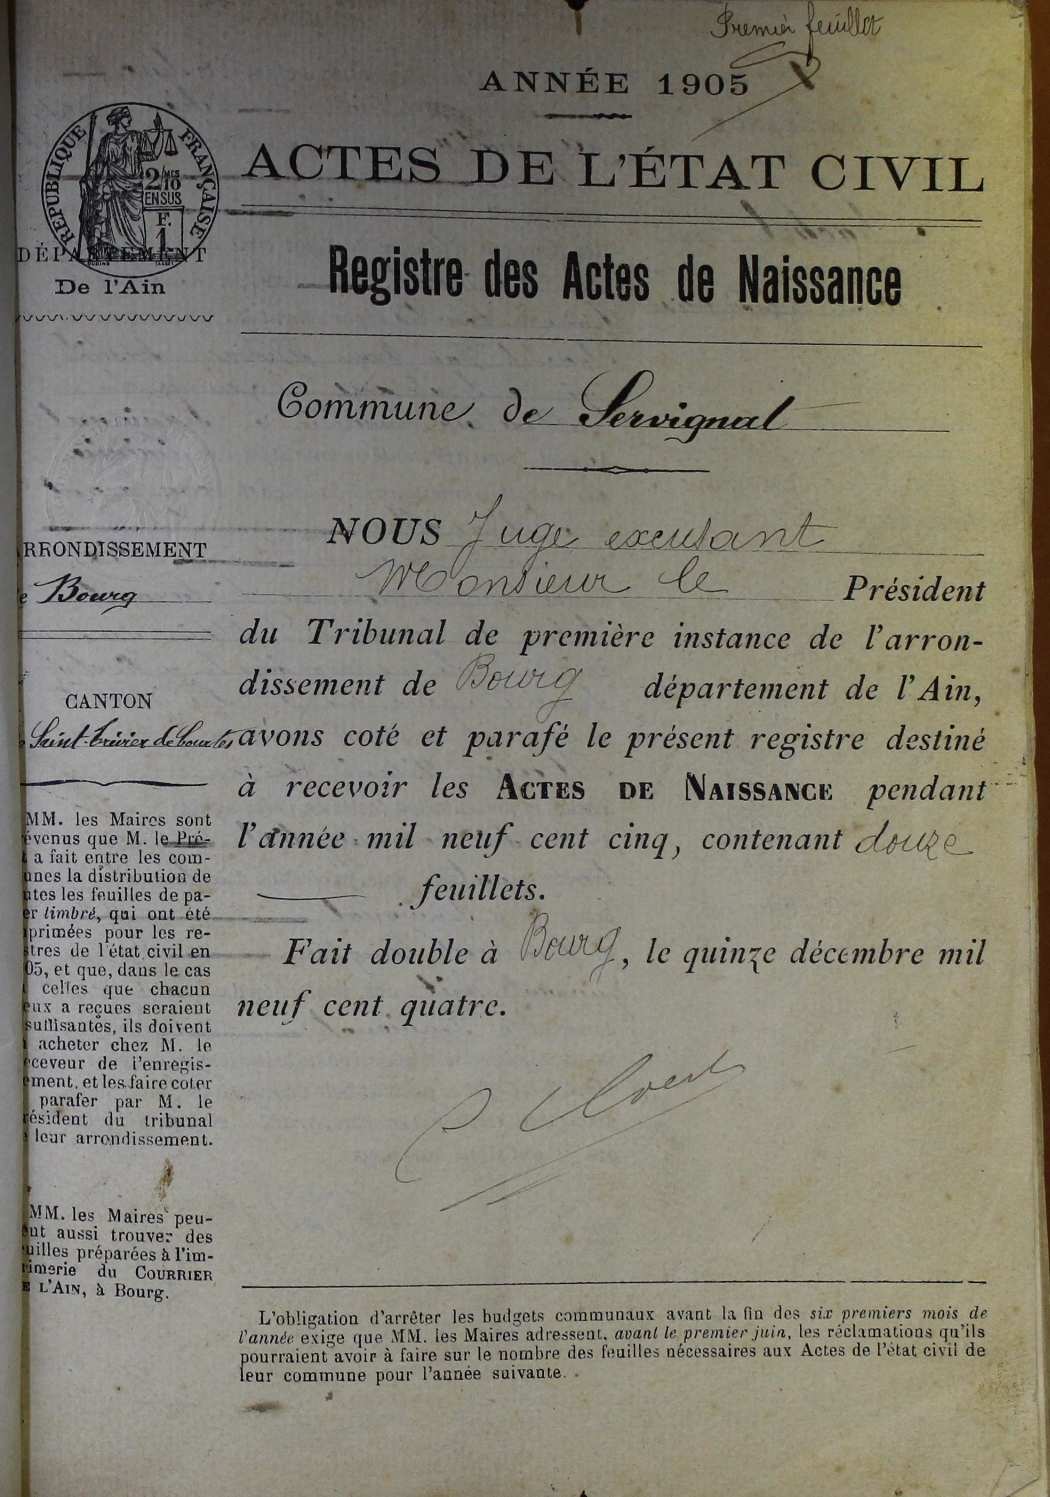 Premier feuillet
ANNÉE 1905
ACTES DE L'ÉTAT CIVIL
RÉPUBLIQUE FRANÇAISE
2/10 MES
EN SUS
F.
1
DÉPARTEMENT
De l'Ain
Registre des Actes de Naissance
Commune de Servignat
RRONDISSEMENT
e Bourg
CANTON
Saint-Trivier de Courtes
MM. les Maires sont
évenus que M. le Pré-
a fait entre les com-
unes la distribution de
tes les feuilles de pa-
er timbré, qui ont été
primées pour les re-
stres de l'état civil en
05, et que, dans le cas
celles que chacun
eux a reçues seraient
suffisantes, ils doivent
acheter chez M. le
ceveur de l'enregis-
ement, et les faire coter
parafer par M. le
ésident du tribunal
leur arrondissement.
MM. les Maires peu-
ut aussi trouver des
uilles préparées à l'im-
rimerie du COURRIER
E L'AIN, à Bourg.
NOUS Juge excusant
Monsieur le Président
du Tribunal de première instance de l'arron-
dissement de Bourg département de l'Ain,
avons coté et parafé le présent registre destiné
à recevoir les ACTES DE NAISSANCE pendant
l'année mil neuf cent cinq, contenant douze
feuillets.
Fait double à Bourg, le quinze décembre mil
neuf cent quatre.
L'obligation d'arrêter les budgets communaux avant la fin des six premiers mois de
l'année exige que MM. les Maires adressent, avant le premier juin, les réclamations qu'ils
pourraient avoir à faire sur le nombre des feuilles nécessaires aux Actes de l'état civil de
leur commune pour l'année suivante.